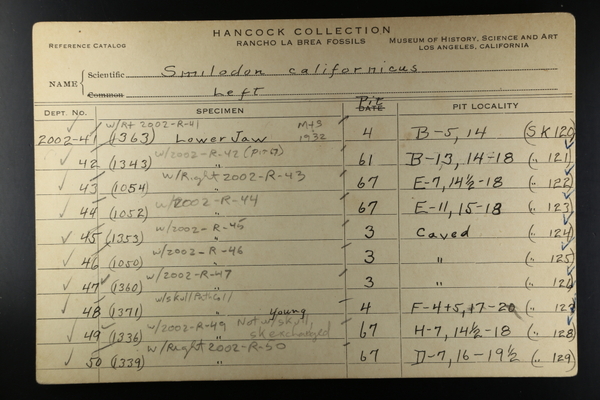 HANCOCK COLLECTION
REFERENCE CATALOG RANCHO LA BREA FOSSILS MUSEUM OF HISTORY, SCIENCE AND ART
LOS ANGELES, CALIFORNIA
NAME { Scientific Smilodon californicus
Common Left
DEPT. NO. SPECIMEN Pit DATE PIT LOCALITY
w/Rt 2002-R-41 M+3
2002-41 (1363) Lower Jaw 1932 4 B-5, 14 (SK120)
w/2002-R-42
42 (1343) " 61 B-13, 14-18 (" 121)
w/Right 2002-R-43
43 (1054) " 67 E-7, 14½-18 (" 122)
w/2002-R-44
44 (1052) " 67 E-11, 15-18 (" 123)
w/2002-R-45
45 (1353) " 3 Caved (" 124)
w/2002-R-46
46 (1050) " 3 " (" 125)
w/2002-R-47
47 (1360) " 3 " (" 126)
w/skull
48 (1371) " young 4 F-4+5, 17-20 (" 127)
w/2002-R-49 Not w/skull
49 (1336) " sk exchanged 67 H-7, 14½-18 (" 128)
w/Right 2002-R-50
50 (1339) " 67 D-7, 16-19½ (" 129)